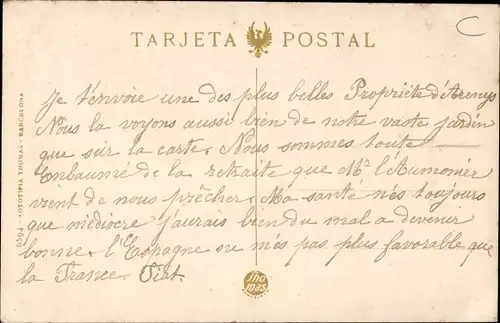 C
TARJETA POSTAL
Je t'envoie une des plus belles Propriété d'Arenys
Nous la voyons aussi bien de notre vaste jardin
que sur la carte. Nous sommes toute
Enbaumé de la retraite que Mr l'Aumonier
vient de nous prêcher. Ma santé n'és toujours
que médiocre j'aurais bien du mal a devener
bonne. l'Espagne ne m'es pas plus favorable que
la France. Fiat.
6594 - FOTOTIPIA THOMAS - BARCELONA
Thomas